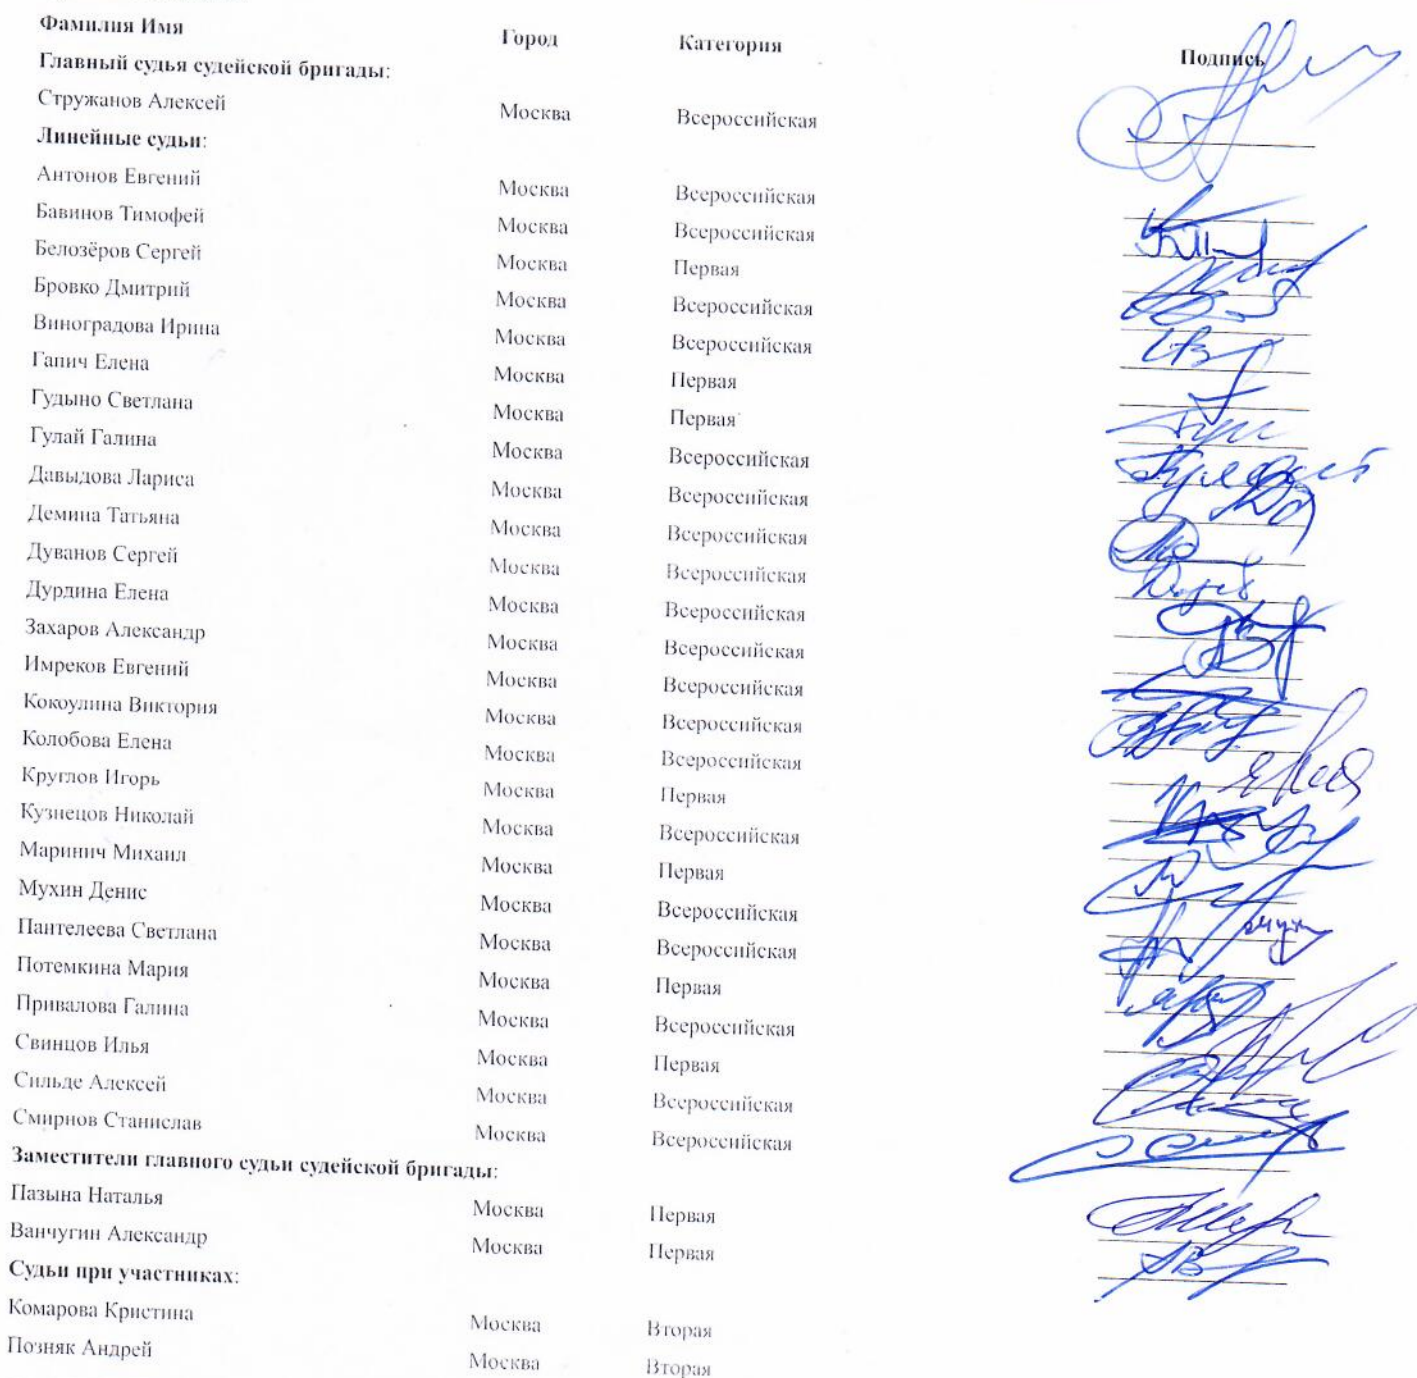 Фамилия Имя Город Категория Подпись
Главный судья судейской бригады:
Стружанов Алексей Москва Всероссийская
Линейные судьи:
Антонов Евгений Москва Всероссийская
Бавинов Тимофей Москва Всероссийская
Белозёров Сергей Москва Первая
Бровко Дмитрий Москва Всероссийская
Виноградова Ирина Москва Всероссийская
Гапич Елена Москва Первая
Гудыно Светлана Москва Первая
Гулай Галина Москва Всероссийская
Давыдова Лариса Москва Всероссийская
Демина Татьяна Москва Всероссийская
Дуванов Сергей Москва Всероссийская
Дурдина Елена Москва Всероссийская
Захаров Александр Москва Всероссийская
Имреков Евгений Москва Всероссийская
Кокоулина Виктория Москва Всероссийская
Колобова Елена Москва Всероссийская
Круглов Игорь Москва Первая
Кузнецов Николай Москва Всероссийская
Маринич Михаил Москва Первая
Мухин Денис Москва Всероссийская
Пантелеева Светлана Москва Всероссийская
Потемкина Мария Москва Первая
Привалова Галина Москва Всероссийская
Свинцов Илья Москва Первая
Сильде Алексей Москва Всероссийская
Смирнов Станислав Москва Всероссийская
Заместители главного судьи судейской бригады:
Пазына Наталья Москва Первая
Ванчугин Александр Москва Первая
Судьи при участниках:
Комарова Кристина Москва Вторая
Позняк Андрей Москва Вторая